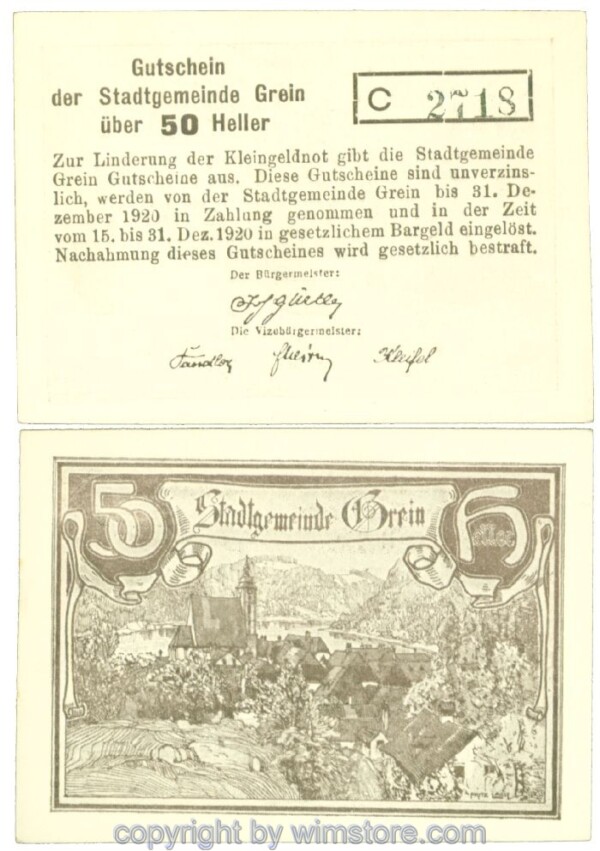 Gutschein
der Stadtgemeinde Grein
über 50 Heller
C 2718
Zur Linderung der Kleingeldnot gibt die Stadtgemeinde
Grein Gutscheine aus. Diese Gutscheine sind unverzins-
lich, werden von der Stadtgemeinde Grein bis 31. De-
zember 1920 in Zahlung genommen und in der Zeit
vom 15. bis 31. Dez. 1920 in gesetzlichem Bargeld eingelöst.
Nachahmung dieses Gutscheines wird gesetzlich bestraft.
Der Bürgermeister:
Die Vizebürgermeister:
50 Stadtgemeinde Grein Heller
copyright by wimstore.com